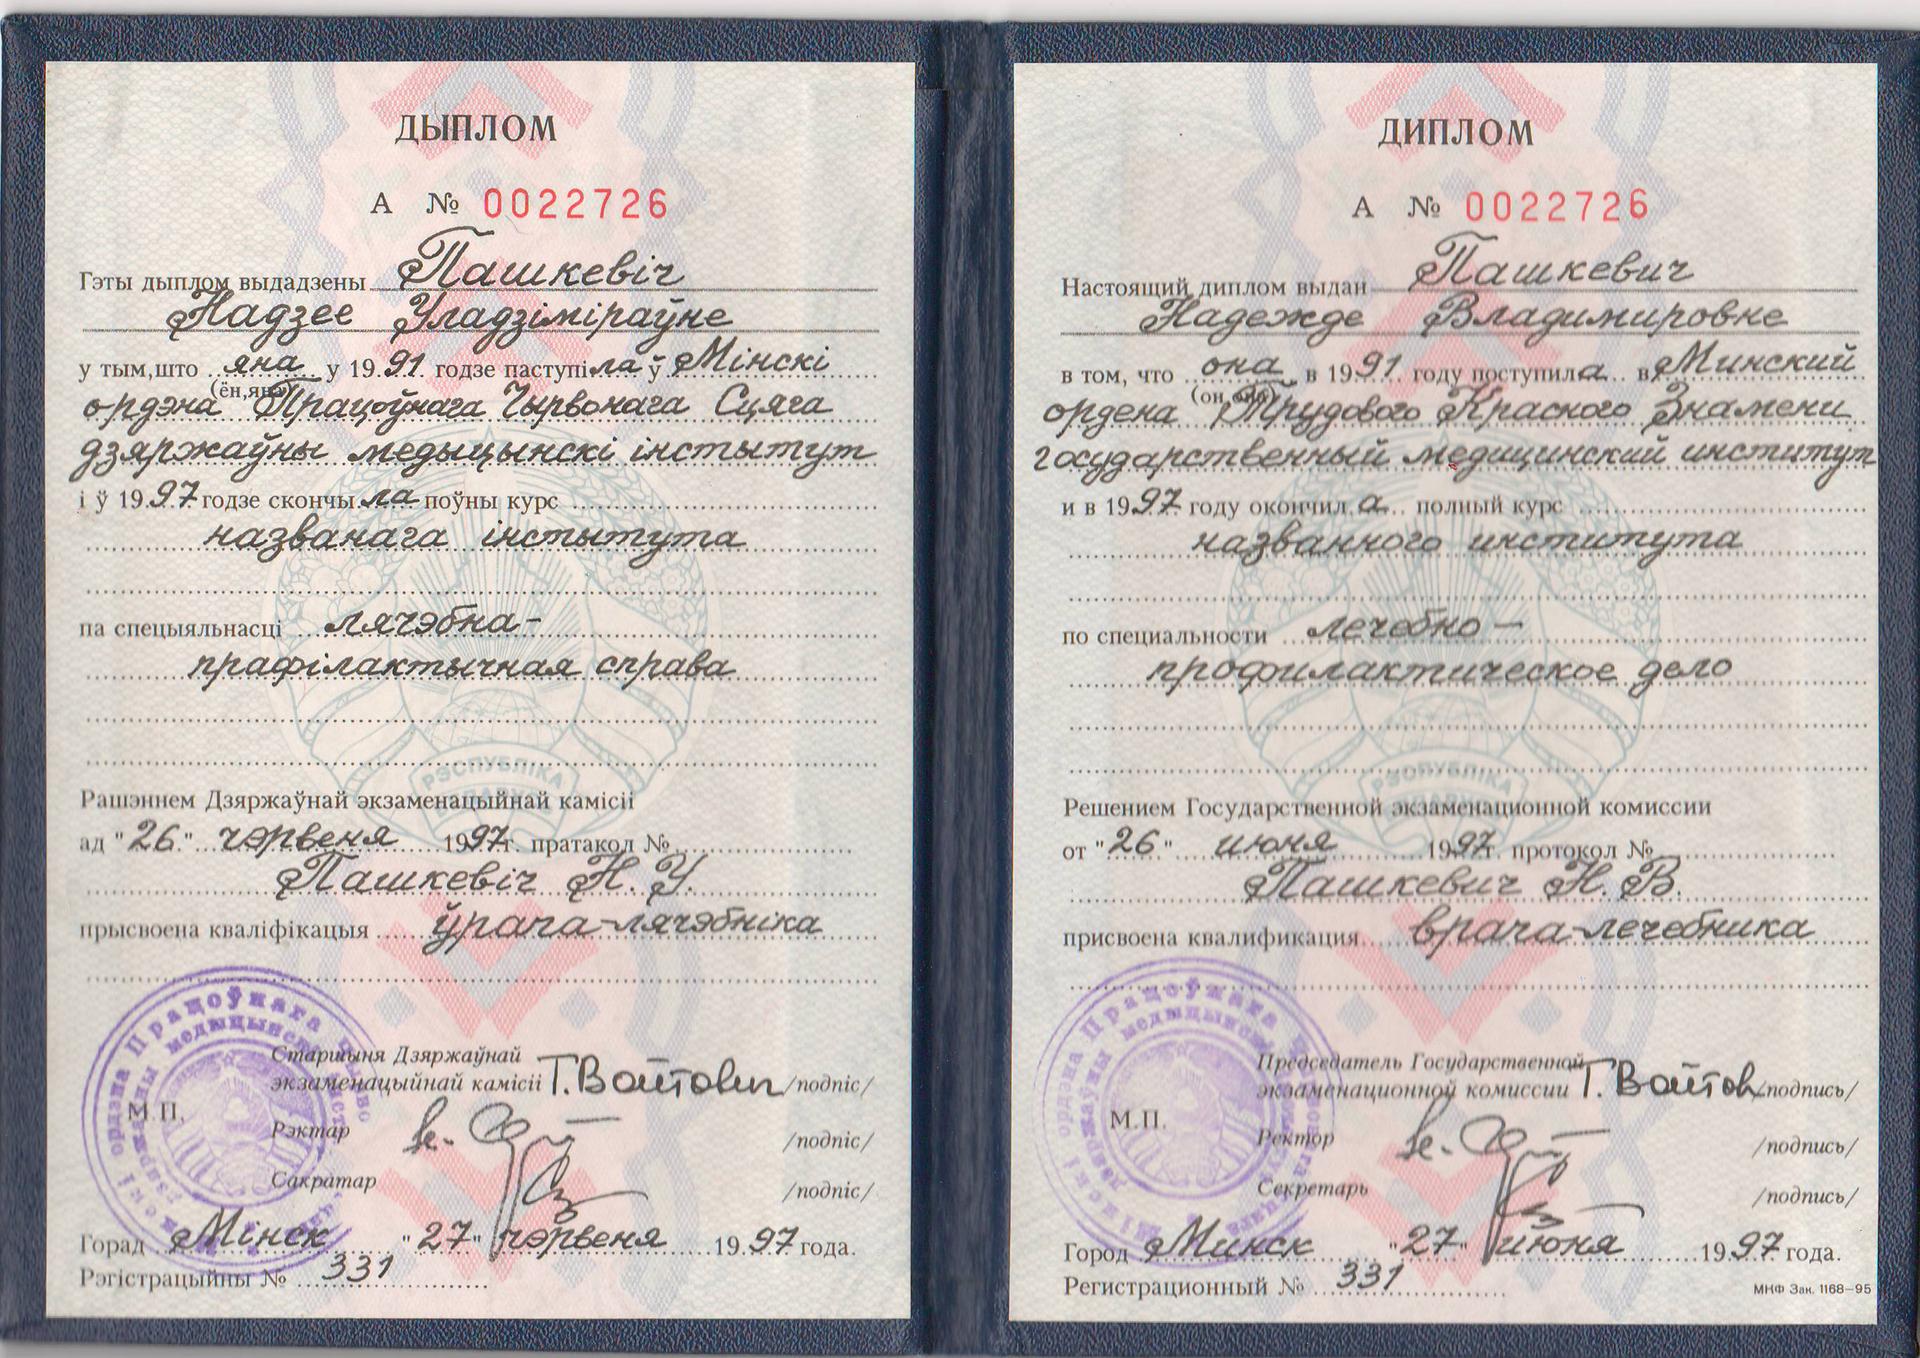 ДЫПЛОМ
А № 0022726
Гэты дыплом выдадзены Пашкевіч
Надзее Уладзіміраўне
у тым, што яна у 1991 годзе паступіла ў Мінскі
(ён, яна)
ордэна Працоўнага Чырвонага Сцяга
дзяржаўны медыцынскі інстытут
і ў 1997 годзе скончыла поўны курс
названага інстытута
па спецыяльнасці лячэбна-
прафілактычная справа
РЭСПУБЛІКА
Рашэннем Дзяржаўнай экзаменацыйнай камісіі
ад "26" чэрвеня 1997 г. пратакол №
Пашкевіч Н. У.
прысвоена кваліфікацыя ўрача-лячэбніка
Старшыня Дзяржаўнай
экзаменацыйнай камісіі Г. Вайтовіч /подпіс/
М.П.
Рэктар /подпіс/
Сакратар /подпіс/
Горад Мінск "27" чэрвеня 1997 года.
Рэгістрацыйны № 331
ДИПЛОМ
А № 0022726
Настоящий диплом выдан Пашкевич
Надежде Владимировне
в том, что она в 1991 году поступила в Минский
(он, она)
ордена Трудового Красного Знамени
государственный медицинский институт
и в 1997 году окончила полный курс
названного института
по специальности лечебно —
профилактическое дело
РЭСПУБЛІКА
Решением Государственной экзаменационной комиссии
от "26" июня 1997 г. протокол №
Пашкевич Н. В.
присвоена квалификация врача-лечебника
Председатель Государственной
экзаменационной комиссии Г. Вайтов /подпись/
М.П.
Ректор /подпись/
Секретарь /подпись/
Город Минск "27" июня 1997 года.
Регистрационный № 331
МНФ Зак. 1168—95